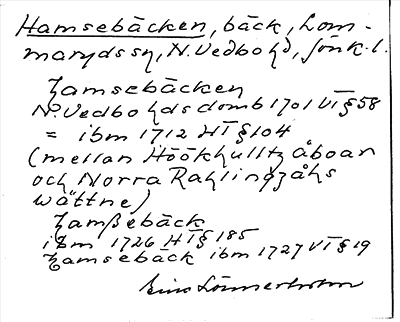 Hamsebäcken, bäck, Lom-
marydssn, N. Vedbo hd, Jönk. l.
Hamsebäcken
No. Vedbo hds domb 1701 VT § 58
= ibm 1712 HT § 104
(mellan Höökhulltz åboar
och Norra Rahlingzåhs
wättne)
Hamßebäck
ibm 1726 HT § 185
Hamsebäck ibm 1727 VT § 19